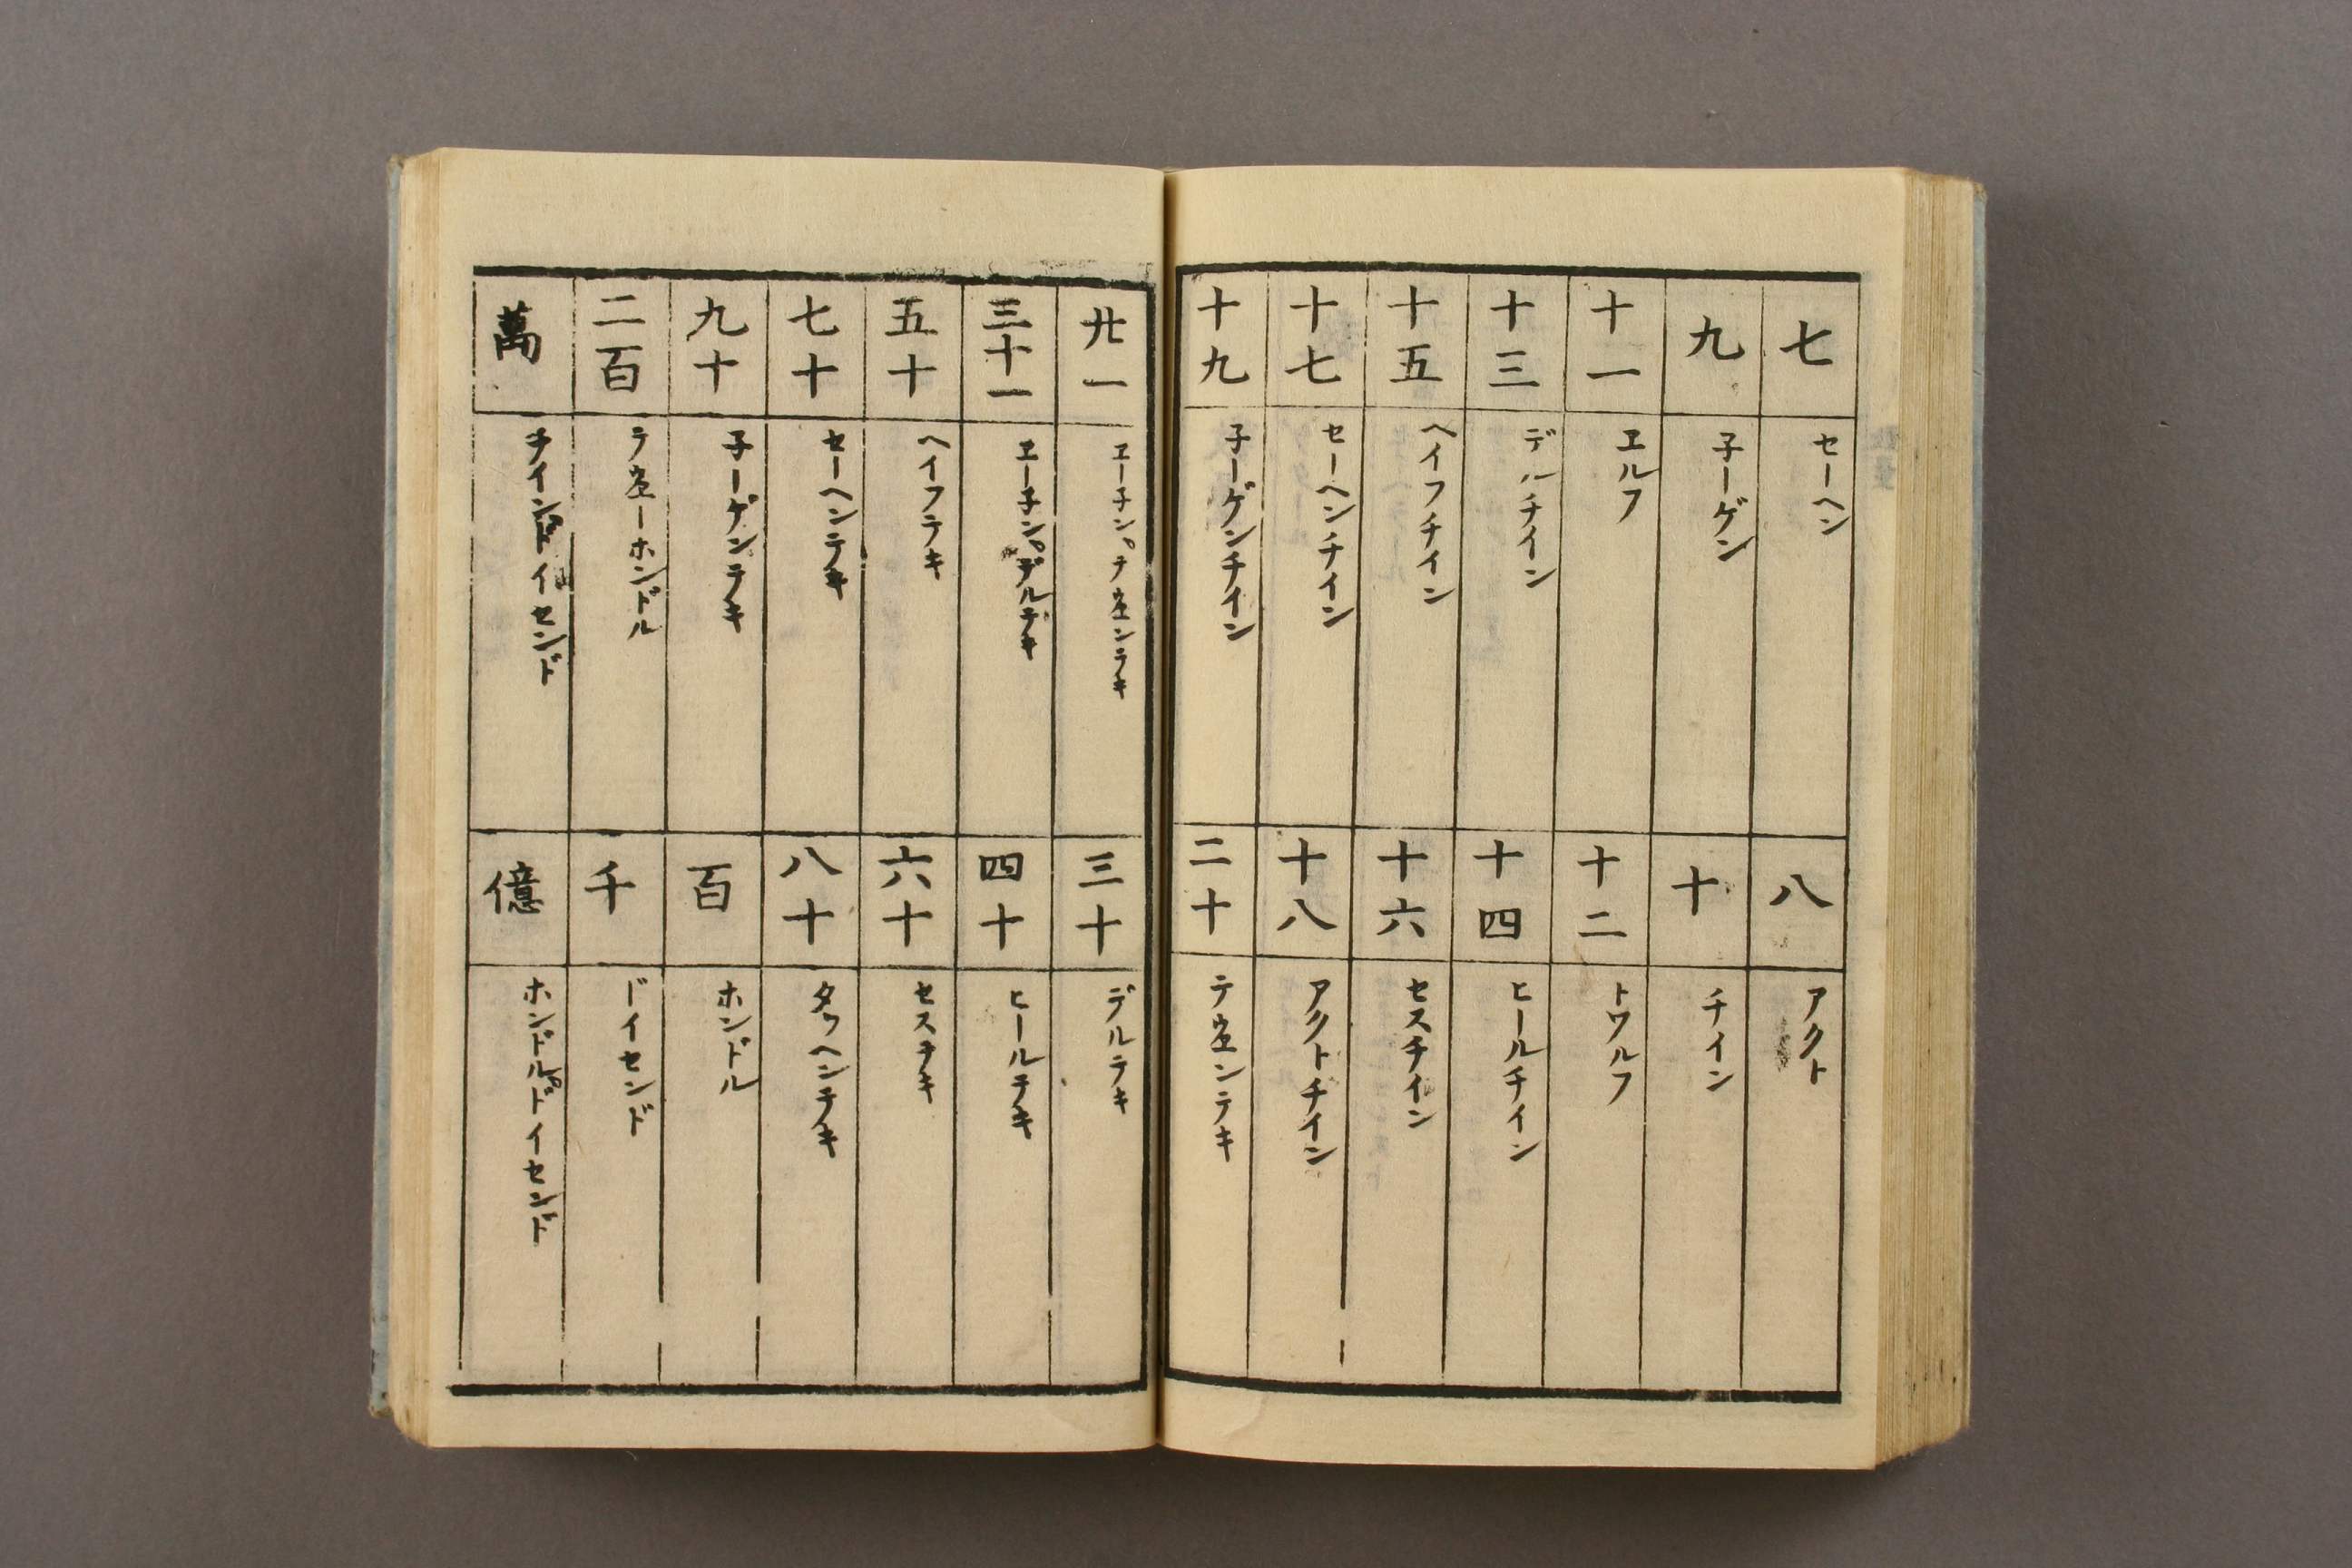 七 セーヘン
八 アクト
九 子ーゲン
十 チイン
十一 ヱルフ
十二 トワルフ
十三 デルチイン
十四 ヒールチイン
十五 ヘイフチイン
十六 セスチイン
十七 セーヘンチイン
十八 アクトチイン
十九 子ーゲンチイン
二十 テウヱンテキ
廿一 ヱーチン。テウヱンテキ
三十 デルテキ
三十一 ヱーチン。デルテキ
四十 ヒールテキ
五十 ヘイフテキ
六十 セステキ
七十 セーヘンテキ
八十 タクヘンテキ
九十 子ーゲンテキ
百 ホンドル
二百 テウヱーホンドル
千 ドイセンド
萬 チインドイセンド
億 ホンドルドイセンド